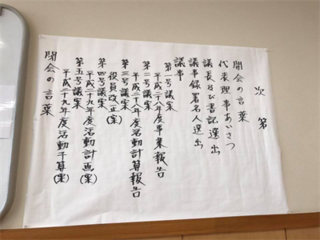 次第
開会の言葉
代表理事あいさつ
議長及び書記選出
議事録署名人選出
議事
第一号議案
平成二十八年度事業報告
第二号議案
平成二十八年度活動計算報告
第三号議案
役員改正(案)
第四号議案
平成二十九年度活動計画(案)
第五号議案
平成二十九年度活動予算(案)
閉会の言葉